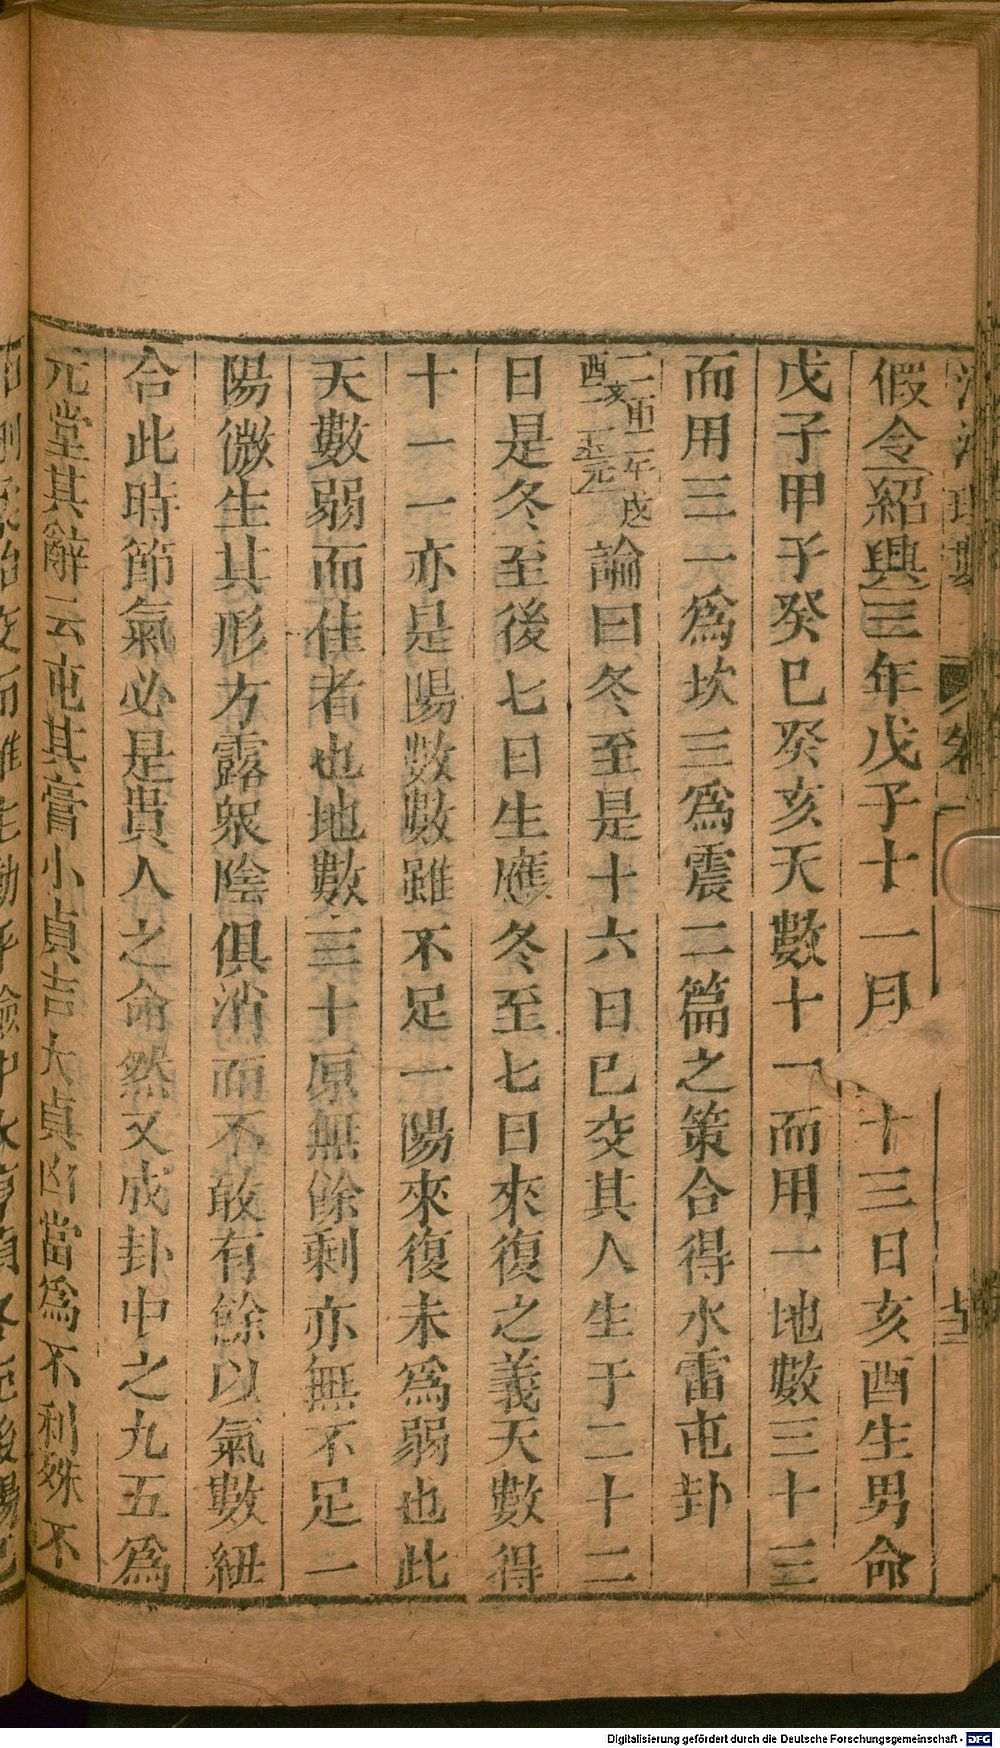 假令紹興三年戊子十一月
十三日亥酉生男命
戊子甲子癸巳癸亥天數十一而用一地數三十三
而用三一爲坎三爲震二篇之策合得水雷屯卦
論曰冬至是十六日已交其人生于二十二
日是冬至後七日生應冬至七日來復之義天數得
十一一亦是陽數數雖不足一陽來復未爲弱也此
天數弱而佳者也地數三十原無餘剩亦無不足一
陽微生其形方露衆陰俱消而不敢有餘以氣數紐
合此時節氣必是貴人之命然又成卦中之九五爲
元堂其辭云屯其膏小貞吉大貞凶當爲不利姝不
Digitalisierung gefördert durch die Deutsche Forschungsgemeinschaft - DFG